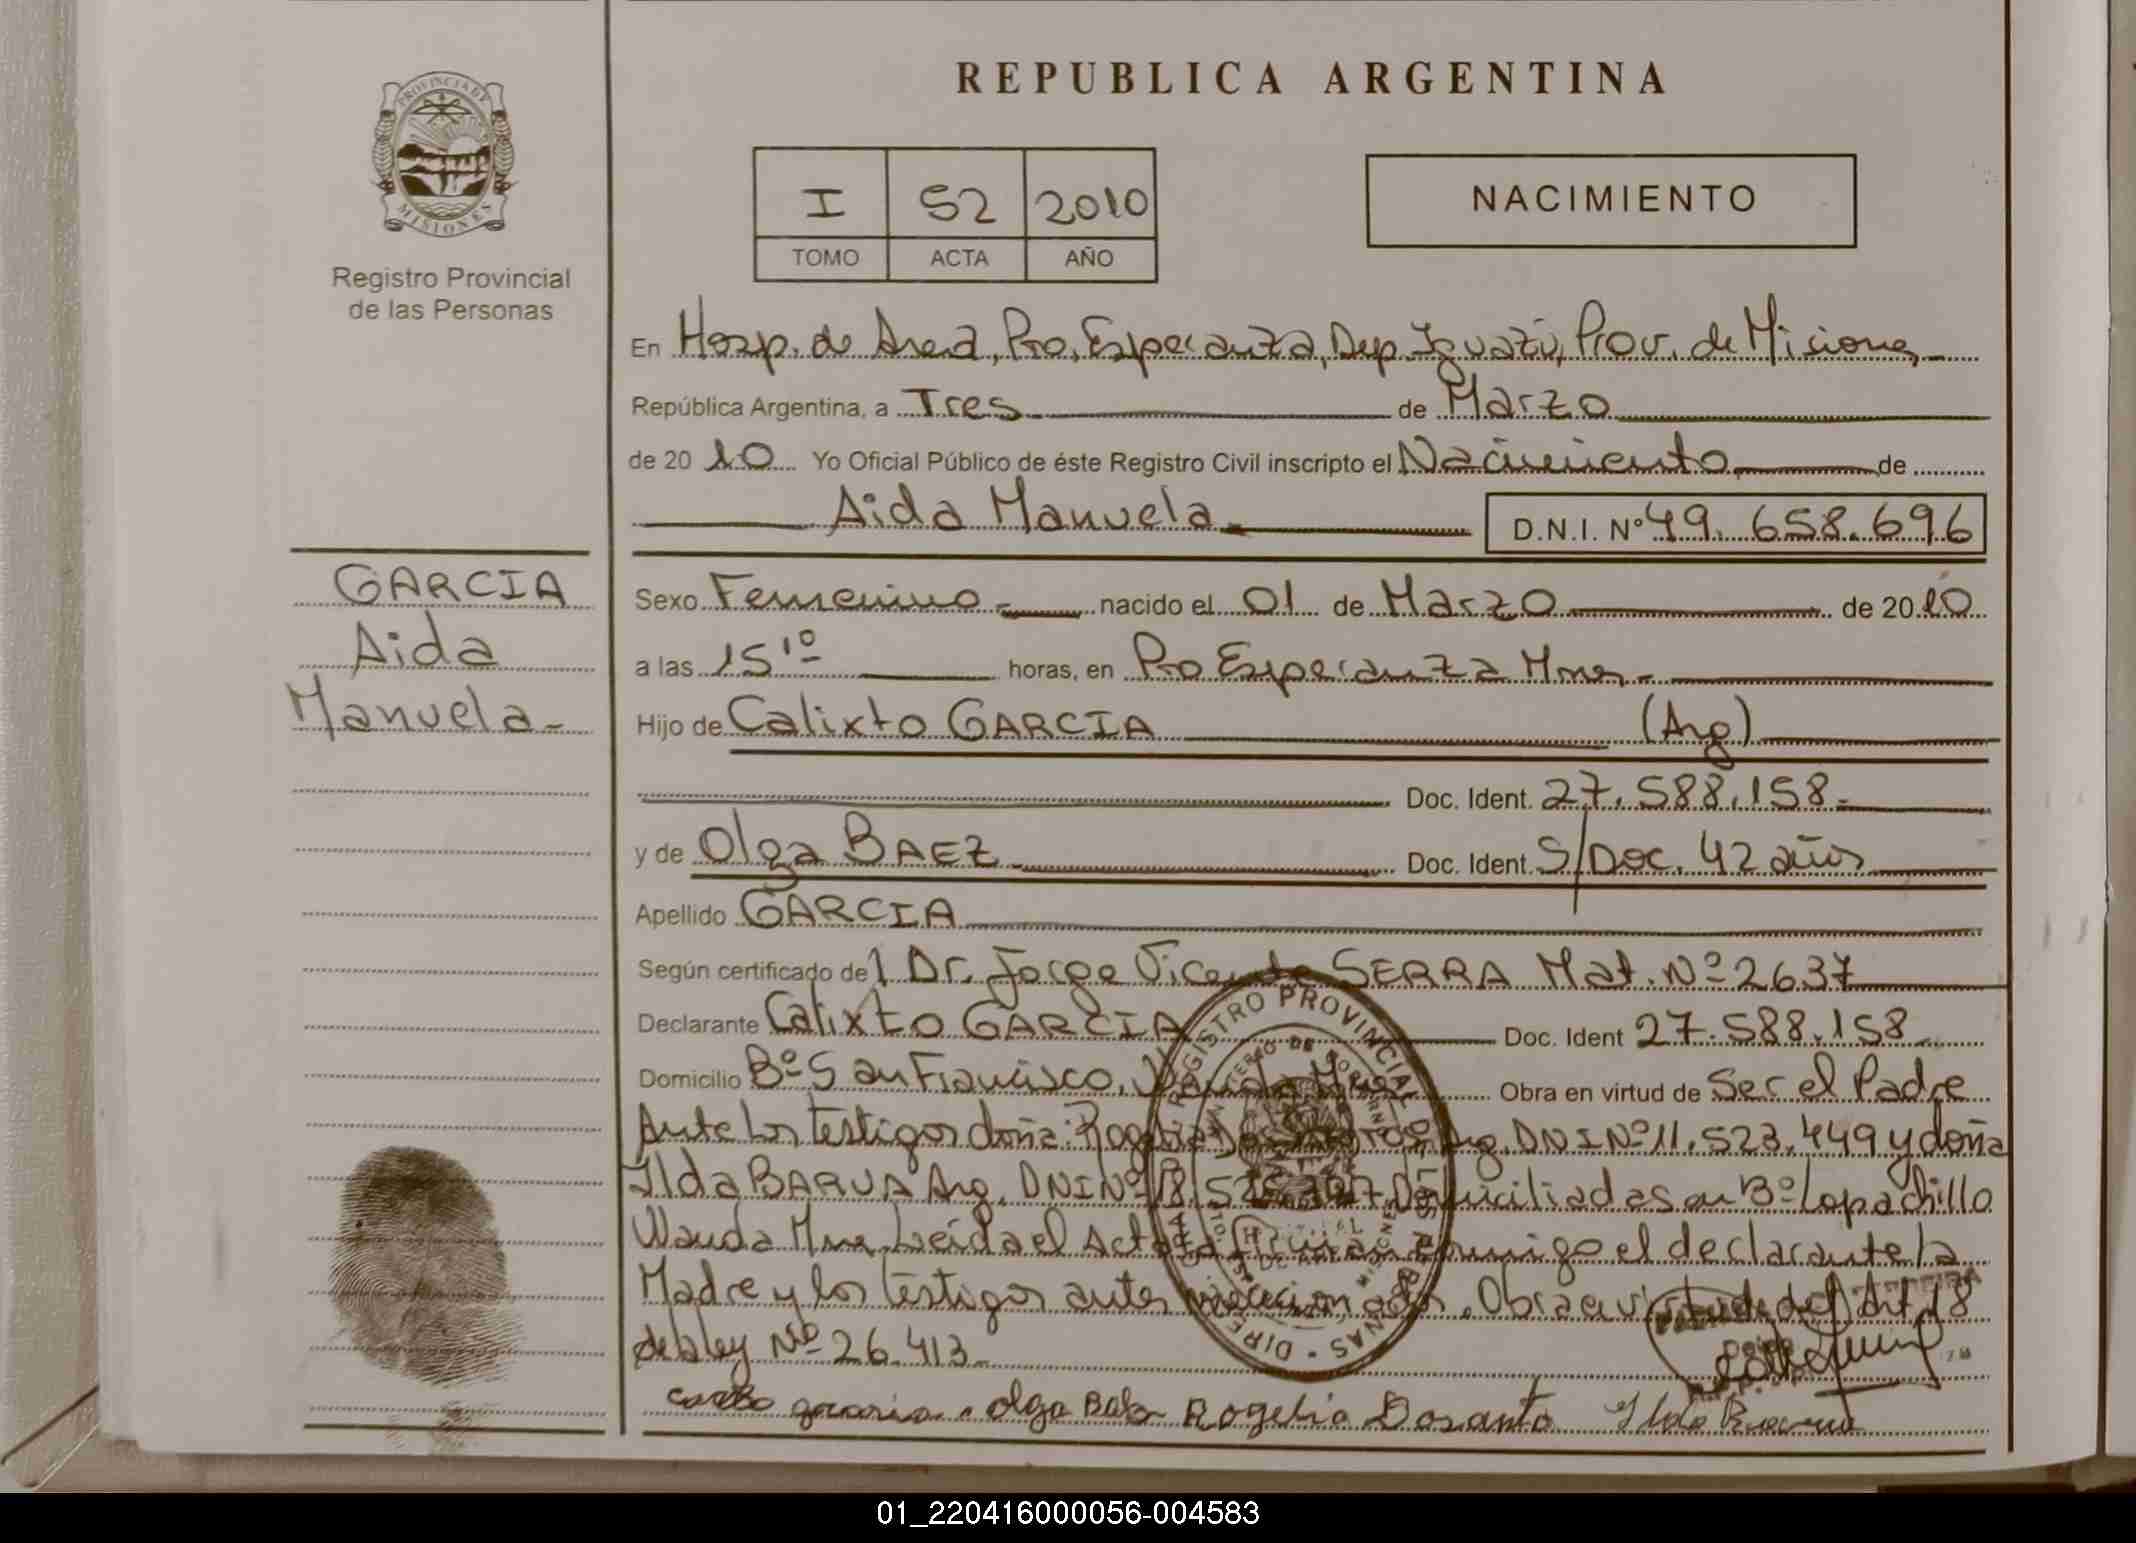 PROVINCIA DE
MISIONES
Registro Provincial
de las Personas
REPUBLICA ARGENTINA
I 52 2010
TOMO ACTA AÑO
NACIMIENTO
En Hosp. de Area, Pto. Esperanza, Dep. Iguazú, Prov. de Misiones
República Argentina, a Tres de Marzo
de 2010 Yo Oficial Público de éste Registro Civil inscripto el Nacimiento de
Aida Manuela D.N.I. Nº 49.658.696
GARCIA
Aida
Manuela
Sexo Femenino nacido el 01 de Marzo de 2010
a las 15¹⁰ horas, en Pto Esperanza Mnes
Hijo de Calixto GARCIA (Arg)
Doc. Ident. 27.588.158
y de Olga BAEZ Doc. Ident. S/Doc. 42 años
Apellido GARCIA
Según certificado del Dr. Jorge Vicente SERRA Mat. Nº 2637
Declarante Calixto GARCIA Doc. Ident 27.588.158
Domicilio Bº San Francisco, Wanda Mnes Obra en virtud de Ser el Padre
Ante los testigos doña: Arg. DNI Nº 11.523.449 y doña
Ilda BARUA Arg. DNI Nº Domiciliadas en Bº Lapachillo
Wanda Mnes Leida el Acta conmigo el declarante la
Madre y los testigos antes Obra en virtud del Art. 18
de la ley Nº 26.413
garcia olga Rogelia Dosanto Ilda
REGISTRO PROVINCIAL DE LAS PERSONAS
01_220416000056-004583